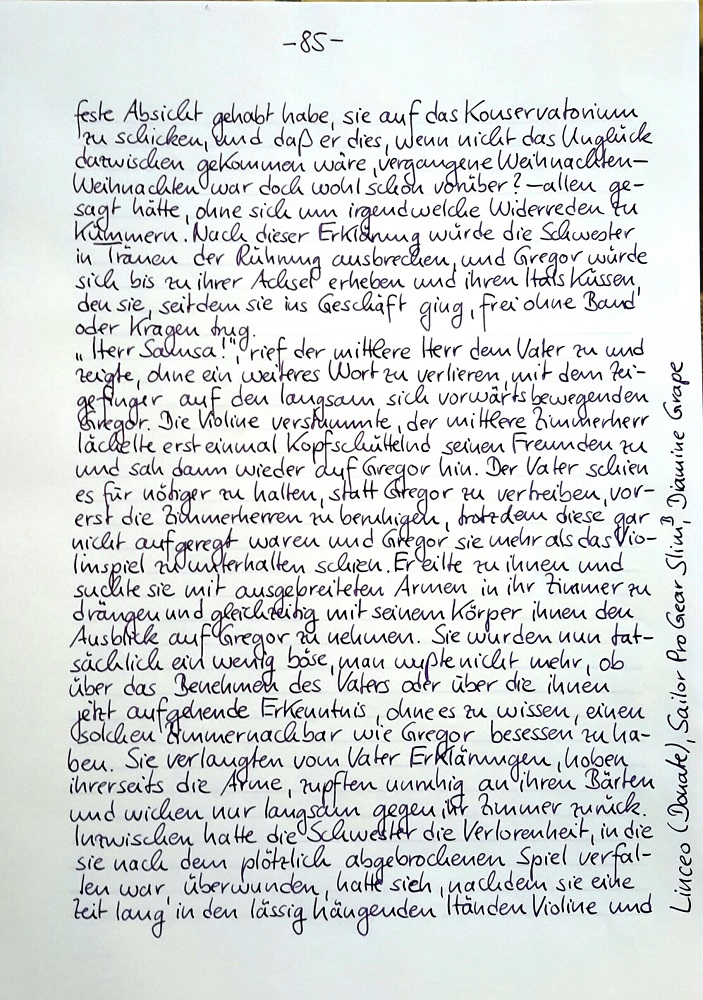 -85-
feste Absicht gehabt habe, sie auf das Konservatorium
zu schicken, und daß er dies, wenn nicht das Unglück
dazwischen gekommen wäre, vergangene Weihnachten—
Weihnachten war doch wohl schon vorüber?—allen ge-
sagt hätte, ohne sich um irgendwelche Widerreden zu
kümmern. Nach dieser Erklärung würde die Schwester
in Tränen der Rührung ausbrechen, und Gregor würde
sich bis zu ihrer Achsel erheben und ihren Hals küssen,
den sie, seitdem sie ins Geschäft ging, frei ohne Band
oder Kragen trug.
„Herr Samsa!", rief der mittlere Herr dem Vater zu und
zeigte, ohne ein weiteres Wort zu verlieren, mit dem Zei-
gefinger auf den langsam sich vorwärtsbewegenden
Gregor. Die Violine verstummte, der mittlere Zimmerherr
lächelte erst einmal kopfschüttelnd seinen Freunden zu
und sah dann wieder auf Gregor hin. Der Vater schien
es für nötiger zu halten, statt Gregor zu vertreiben, vor-
erst die Zimmerherren zu beruhigen, trotzdem diese gar
nicht aufgeregt waren und Gregor sie mehr als das Vio-
linspiel zu unterhalten schien. Er eilte zu ihnen und
suchte sie mit ausgebreiteten Armen in ihr Zimmer zu
drängen und gleichzeitig mit seinem Körper ihnen den
Ausblick auf Gregor zu nehmen. Sie wurden nun tat-
sächlich ein wenig böse, man wußte nicht mehr, ob
über das Benehmen des Vaters oder über die ihnen
jetzt aufgehende Erkenntnis, ohne es zu wissen, einen
solchen Zimmernachbar wie Gregor besessen zu ha-
ben. Sie verlangten vom Vater Erklärungen, hoben
ihrerseits die Arme, zupften unruhig an ihren Bärten
und wichen nur langsam gegen ihr Zimmer zurück.
Inzwischen hatte die Schwester die Verlorenheit, in die
sie nach dem plötzlich abgebrochenen Spiel verfal-
len war, überwunden, hatte sich, nachdem sie eine
Zeit lang in den lässig hängenden Händen Violine und
Linceo (Donate), Sailor Pro Gear Slim B, Diamine Grape